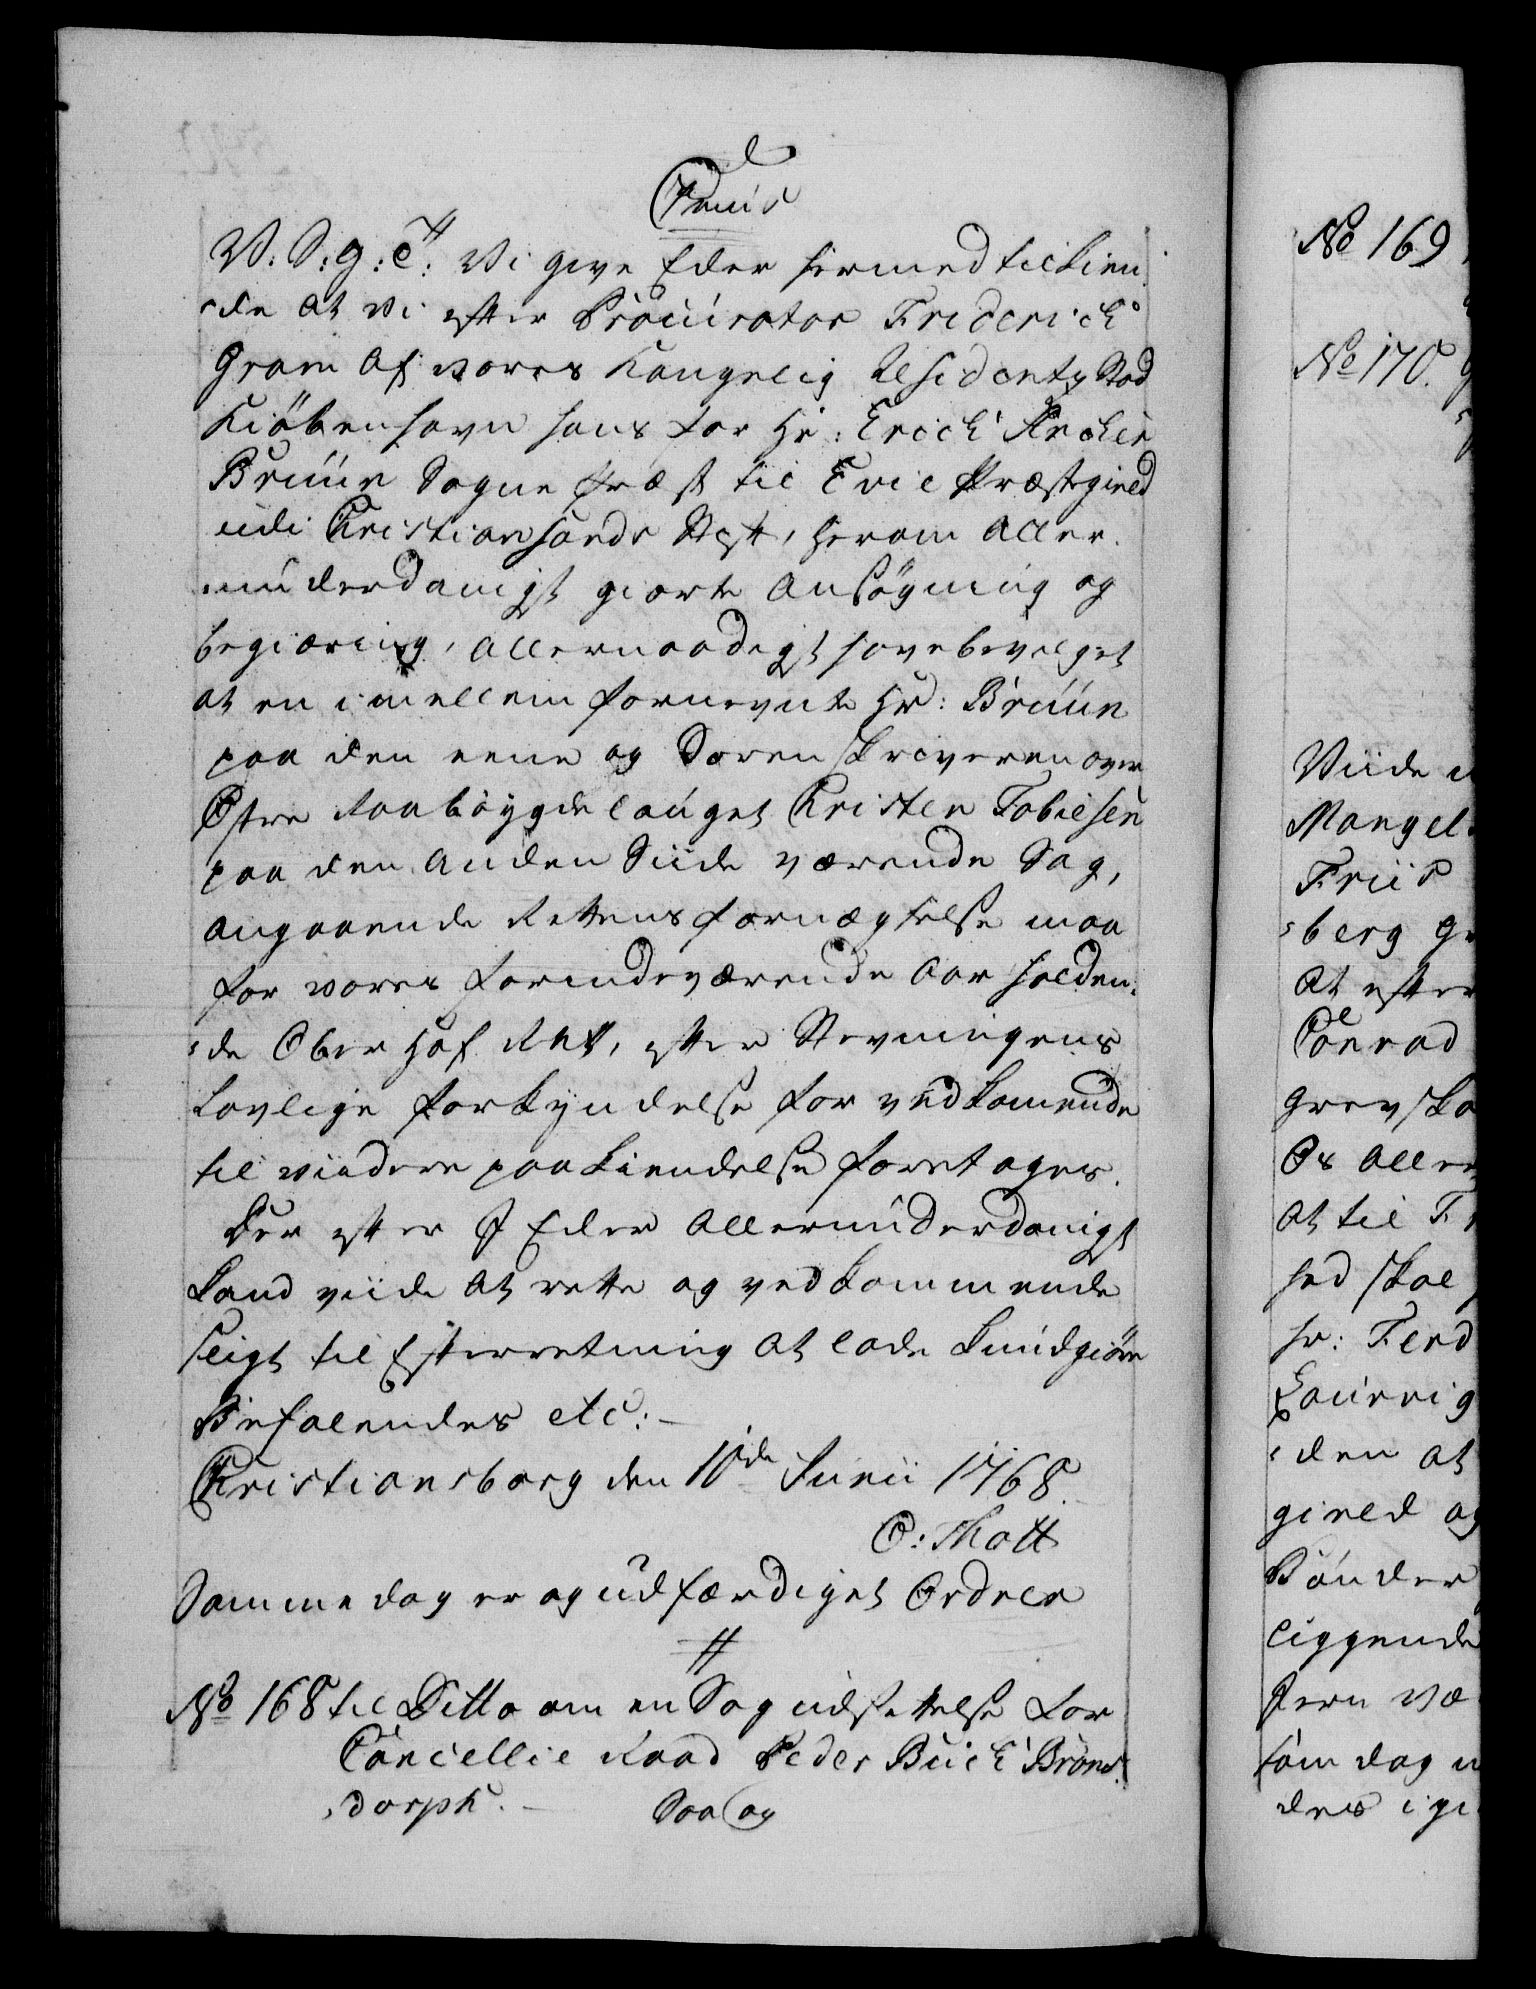 V: S: g: e: Vi give Eder hermed tilkien-
-de at vi efter Procurator Friderich
Gram af vores Kongelig Residentz Stad
Kiöbenhavn hans for Hr: Erich Ancher
Bruun Sogne Præst til Evie Præstegield
udi Christiansands Stift, herom aller-
-underdanigst giorte Ansøgning og
begiæring, allernaadigst have bevilget
at en imellem fornevnte Hr: Bruun
paa den eene og Sorenskriveren over
Østre Raabøygdelauget Christen Tobiesen
paa den anden Siide værende Sag,
angaaende Rettens fornægtelse maa
for vores forindeværende Aar holden-
-de Ober Hof Ret, efter Stevningens
lovlige forkyndelse for vedkomende
til viidere paakiendelse foretages.
Der efter I Eder allerunderdanigst
kand viide at rette og vedkommende
sligt til Efterretning at lade kundgiøre
Befalendes etc:
Christiansborg den 10de Junii 1768.
O: Thott
Samme dag er og udfærdiget Ordrer
No 168 til Ditto om en Sag udsettelse for
Cancellie Raad Peder Buch Brøns-
-dorph. Saa og
No 169
No 170.
Viide
Mangel
Friis
-berg
At efter
Conrad
Grevska
Os aller
at til
hed skal
hr: Ferd
Laurvig
-den at
gield og
Bønder
liggende
som dog
des igi